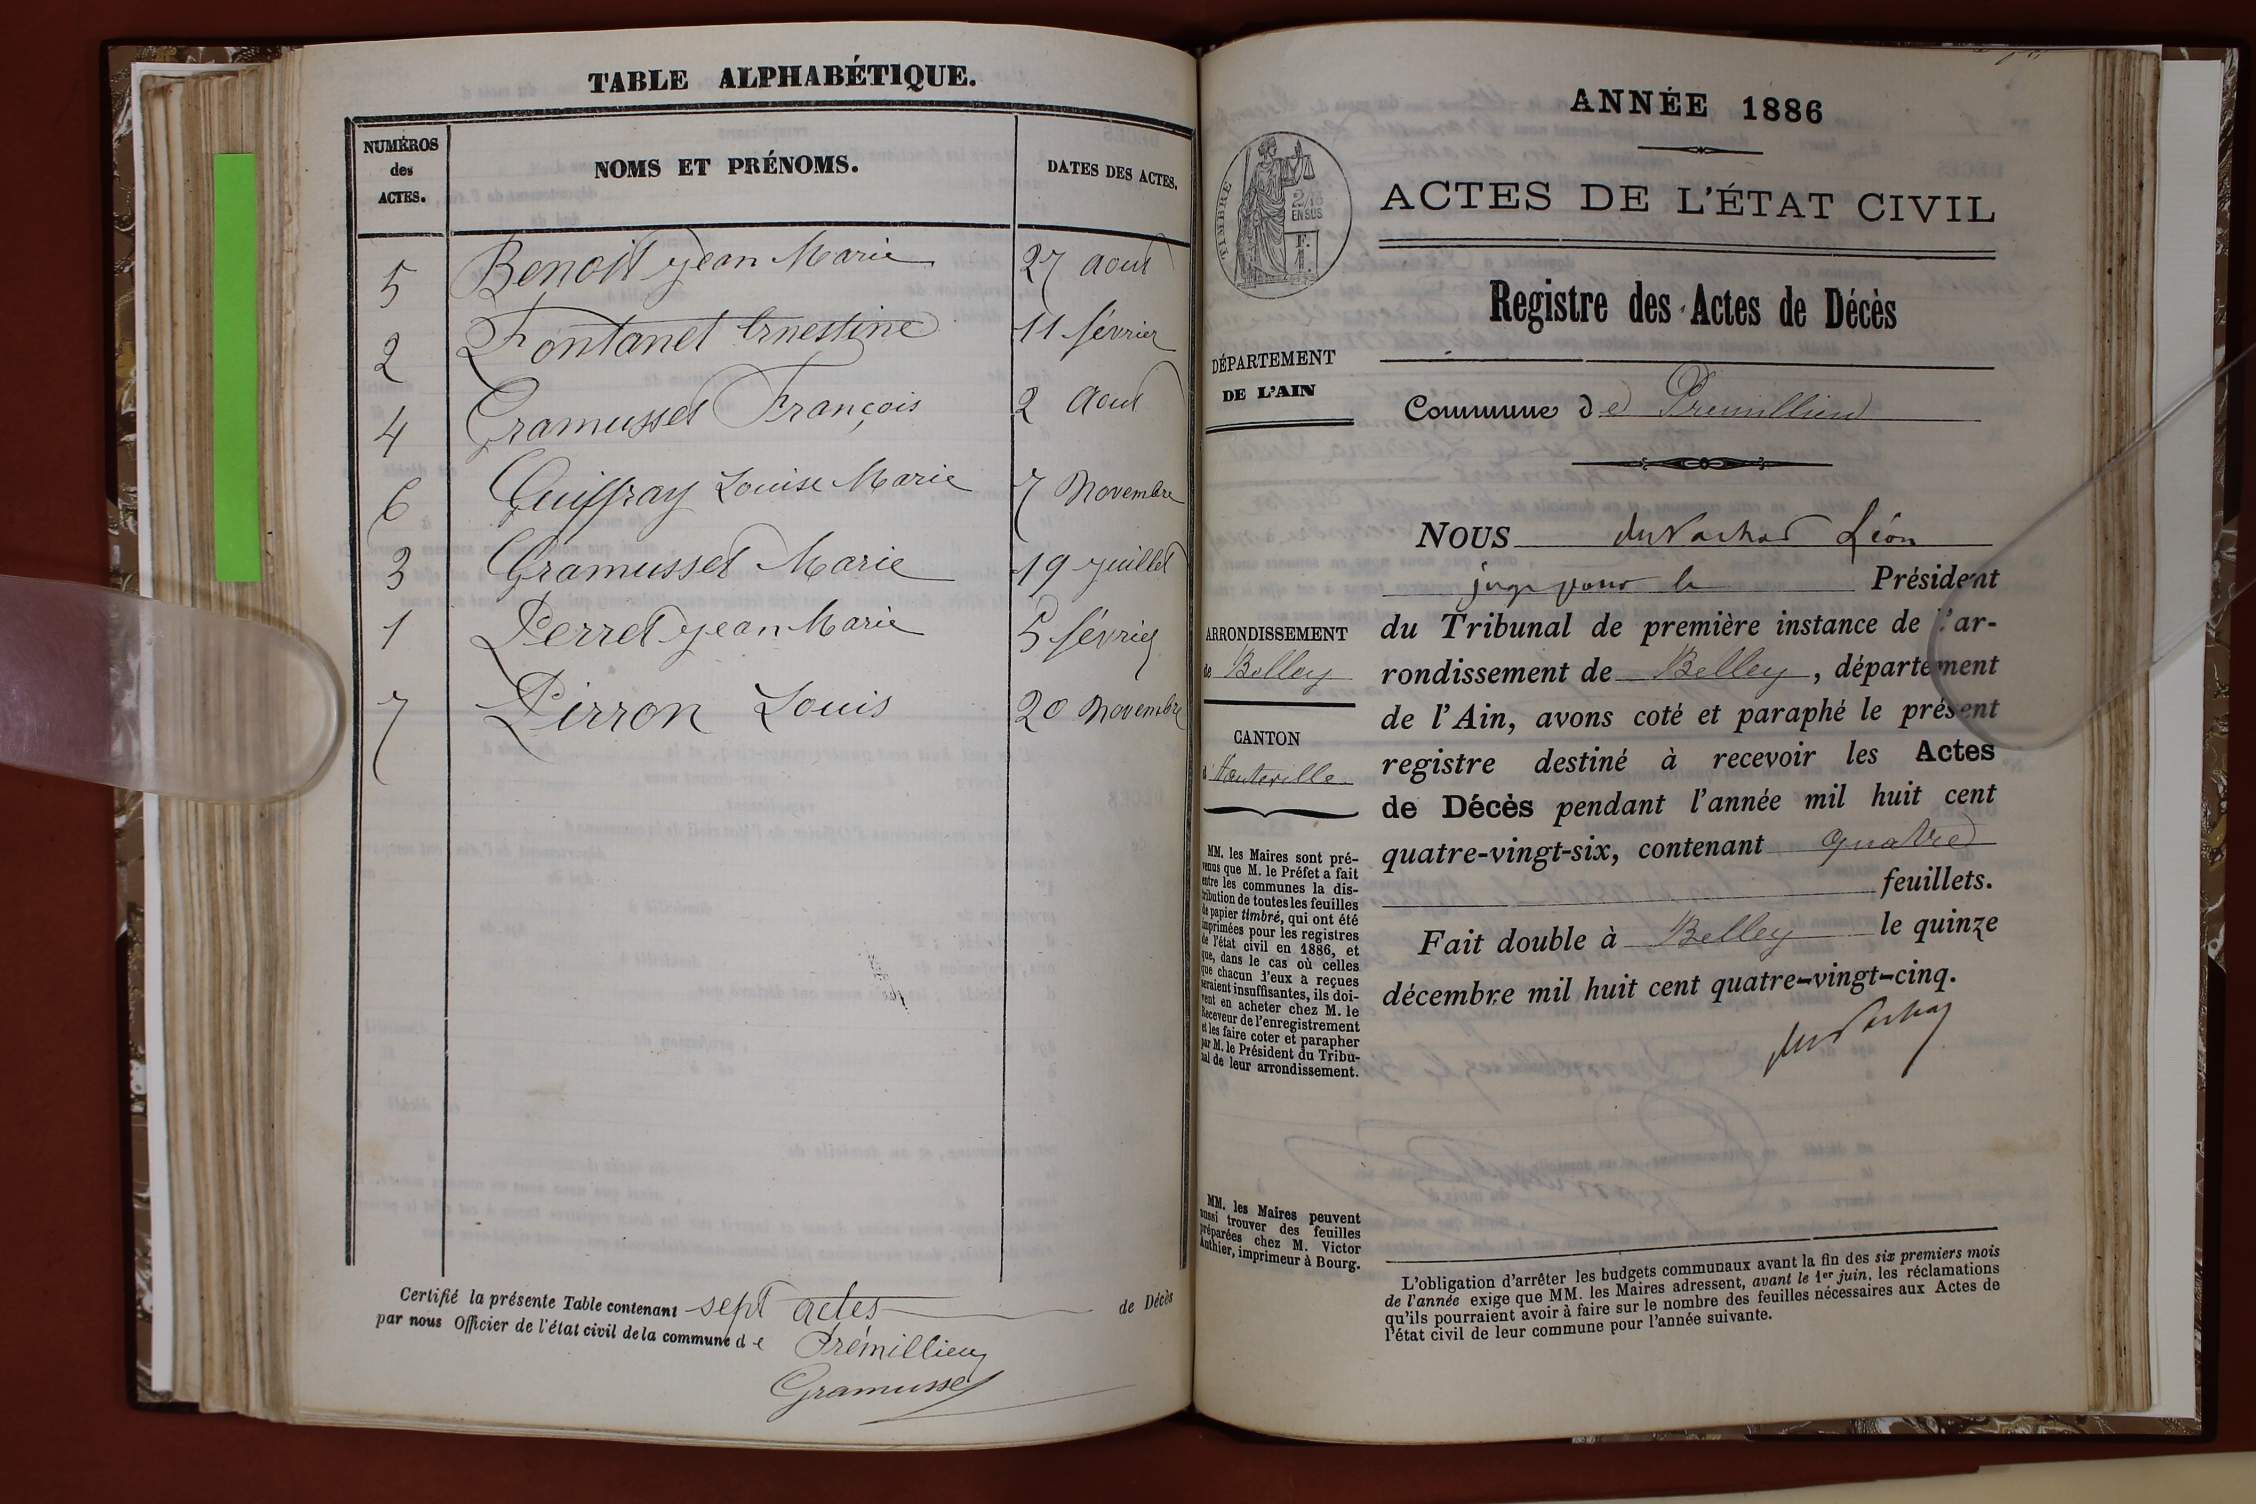 TABLE ALPHABÉTIQUE.
NUMÉROS
des
ACTES.
NOMS ET PRÉNOMS.
DATES DES ACTES.
5 Benoit Jean Marie 27 aout
2 Fontanet Ernestine 11 février
4 Gramusset François 2 Aout
6 Guiffray Louise Marie 7 Novembre
3 Gramusset Marie 19 Juillet
1 Perret Jean Marie 5 février
7 Pirron Louis 20 Novembre
Certifié la présente Table contenant sept actes de Décès
par nous Officier de l'état civil de la commune de Prémillieu
Gramusset
ANNÉE 1886
ACTES DE L'ÉTAT CIVIL
Registre des Actes de Décès
TIMBRE
2/10
EN SUS
F.
DÉPARTEMENT
DE L'AIN
Commune de Premillieu
ARRONDISSEMENT
de Belley
CANTON
d'Hauteville
MM. les Maires sont pré-
venus que M. le Préfet a fait
entre les communes la dis-
tribution de toutes les feuilles
de papier timbré, qui ont été
imprimées pour les registres
de l'état civil en 1886, et
que, dans le cas où celles
que chacun d'eux a reçues
seraient insuffisantes, ils doi-
vent en acheter chez M. le
Receveur de l'enregistrement
et les faire coter et parapher
par M. le Président du Tribu-
nal de leur arrondissement.
MM. les Maires peuvent
aussi trouver des feuilles
préparées chez M. Victor
Authier, imprimeur à Bourg.
NOUS Léon
juge pour le Président
du Tribunal de première instance de l'ar-
rondissement de Belley, département
de l'Ain, avons coté et paraphé le présent
registre destiné à recevoir les Actes
de Décès pendant l'année mil huit cent
quatre-vingt-six, contenant quatre
feuillets.
Fait double à Belley le quinze
décembre mil huit cent quatre-vingt-cinq.
L'obligation d'arrêter les budgets communaux avant la fin des six premiers mois
de l'année exige que MM. les Maires adressent, avant le 1er juin, les réclamations
qu'ils pourraient avoir à faire sur le nombre des feuilles nécessaires aux Actes de
l'état civil de leur commune pour l'année suivante.